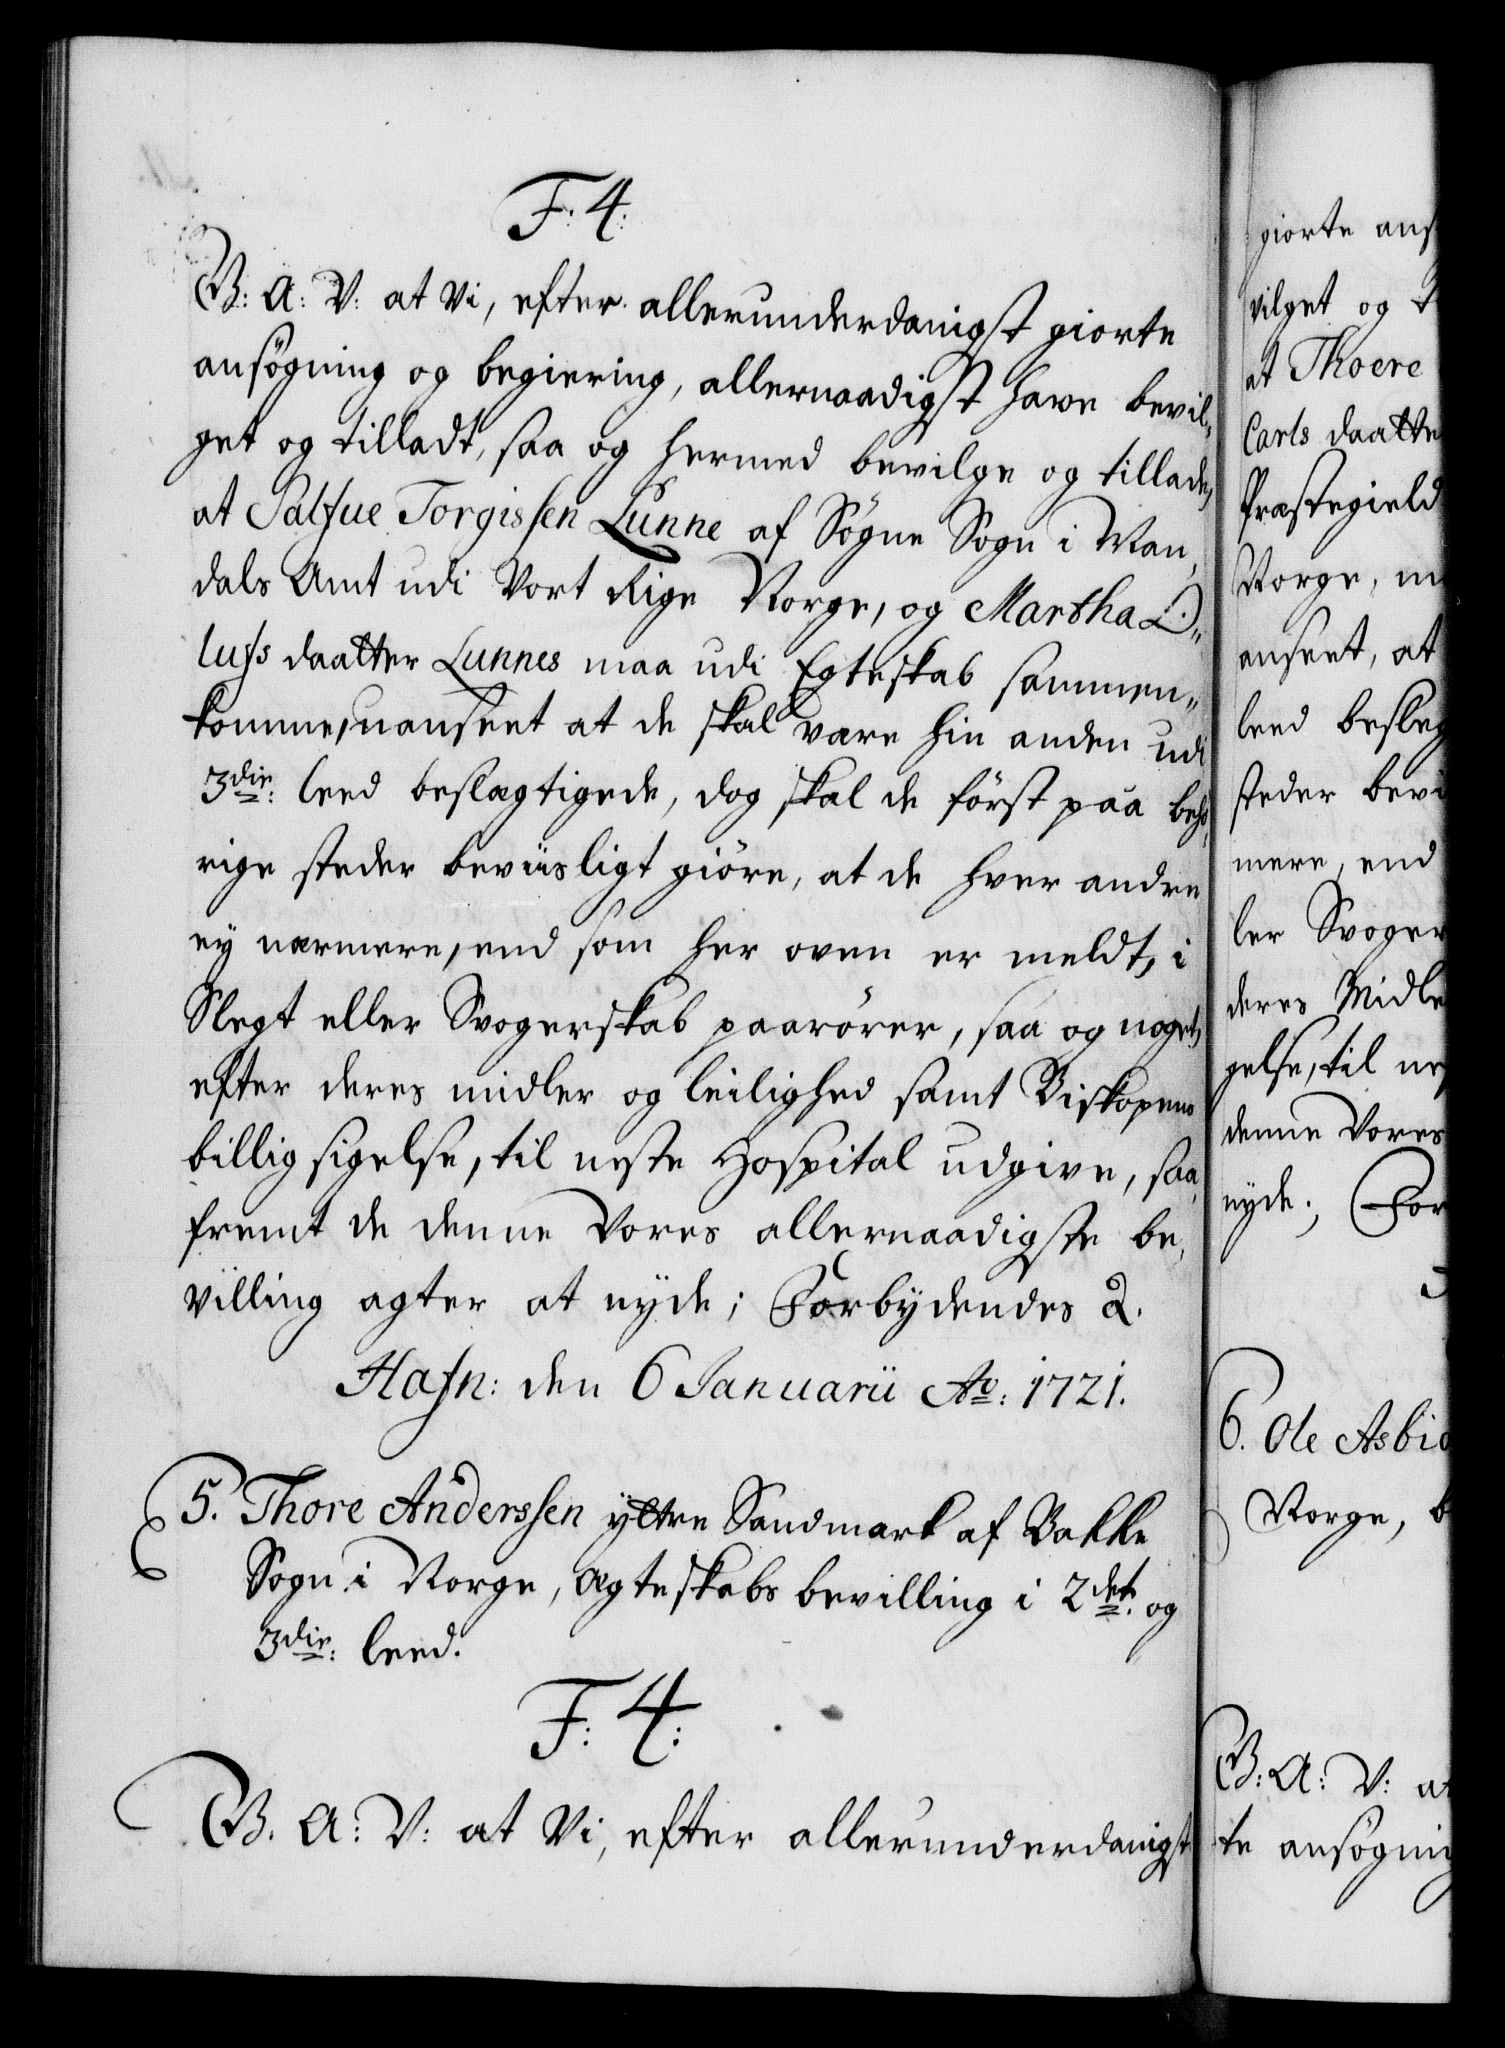 F: 4:
G: A: V: at Vi, efter allerunderdanigst giorte
ansögning og begiering, allernaadigst have bevil„
get og tilladt, saa og hermed bevilge og tillade,
at Salfue Torgissen Lunne af Sögne Sogn i Man„
dals Amt udi Vort Rige Norge, og Martha O„
lufs daatter Lunnes maa udi Egteskab sammen„
komme, uanseet at de skal være hin anden udi
3die: leed beslægtigede, dog skal de först paa behö„
rige steder beviisligt giöre, at de hver andre
ey nærmere, end som her oven er meldt, i
Slegt eller Svogerskab paarörer, saa og noget,
efter deres midler og leilighed samt Biskopens
billig sigelse, til neste Hospital udgive, saa„
fremt de denne Vores allernaadigste be„
villing agter at nyde; Forbydendes &.
Hafn: den 6 Januarii Ao: 1721.
5. Thore Anderssen ÿttre Sandmark af Bakke
Sogn i Norge, Ægteskabs bevilling i 2det: og
3die: leed.
F: 4:
G. A: V: at Vi, efter allerunderdanigst
giorte ans
vilget og t
at Thoere
Carls daatte
Præstegield
Norge, m
anseet, at
leed besleg
steder bevi
mere, end
ler Svoger
deres Midle
gelse, til ne
denne Vores
nyde; For
6. Ole Asbio
Norge, b
G: A: V: at
te ansögning